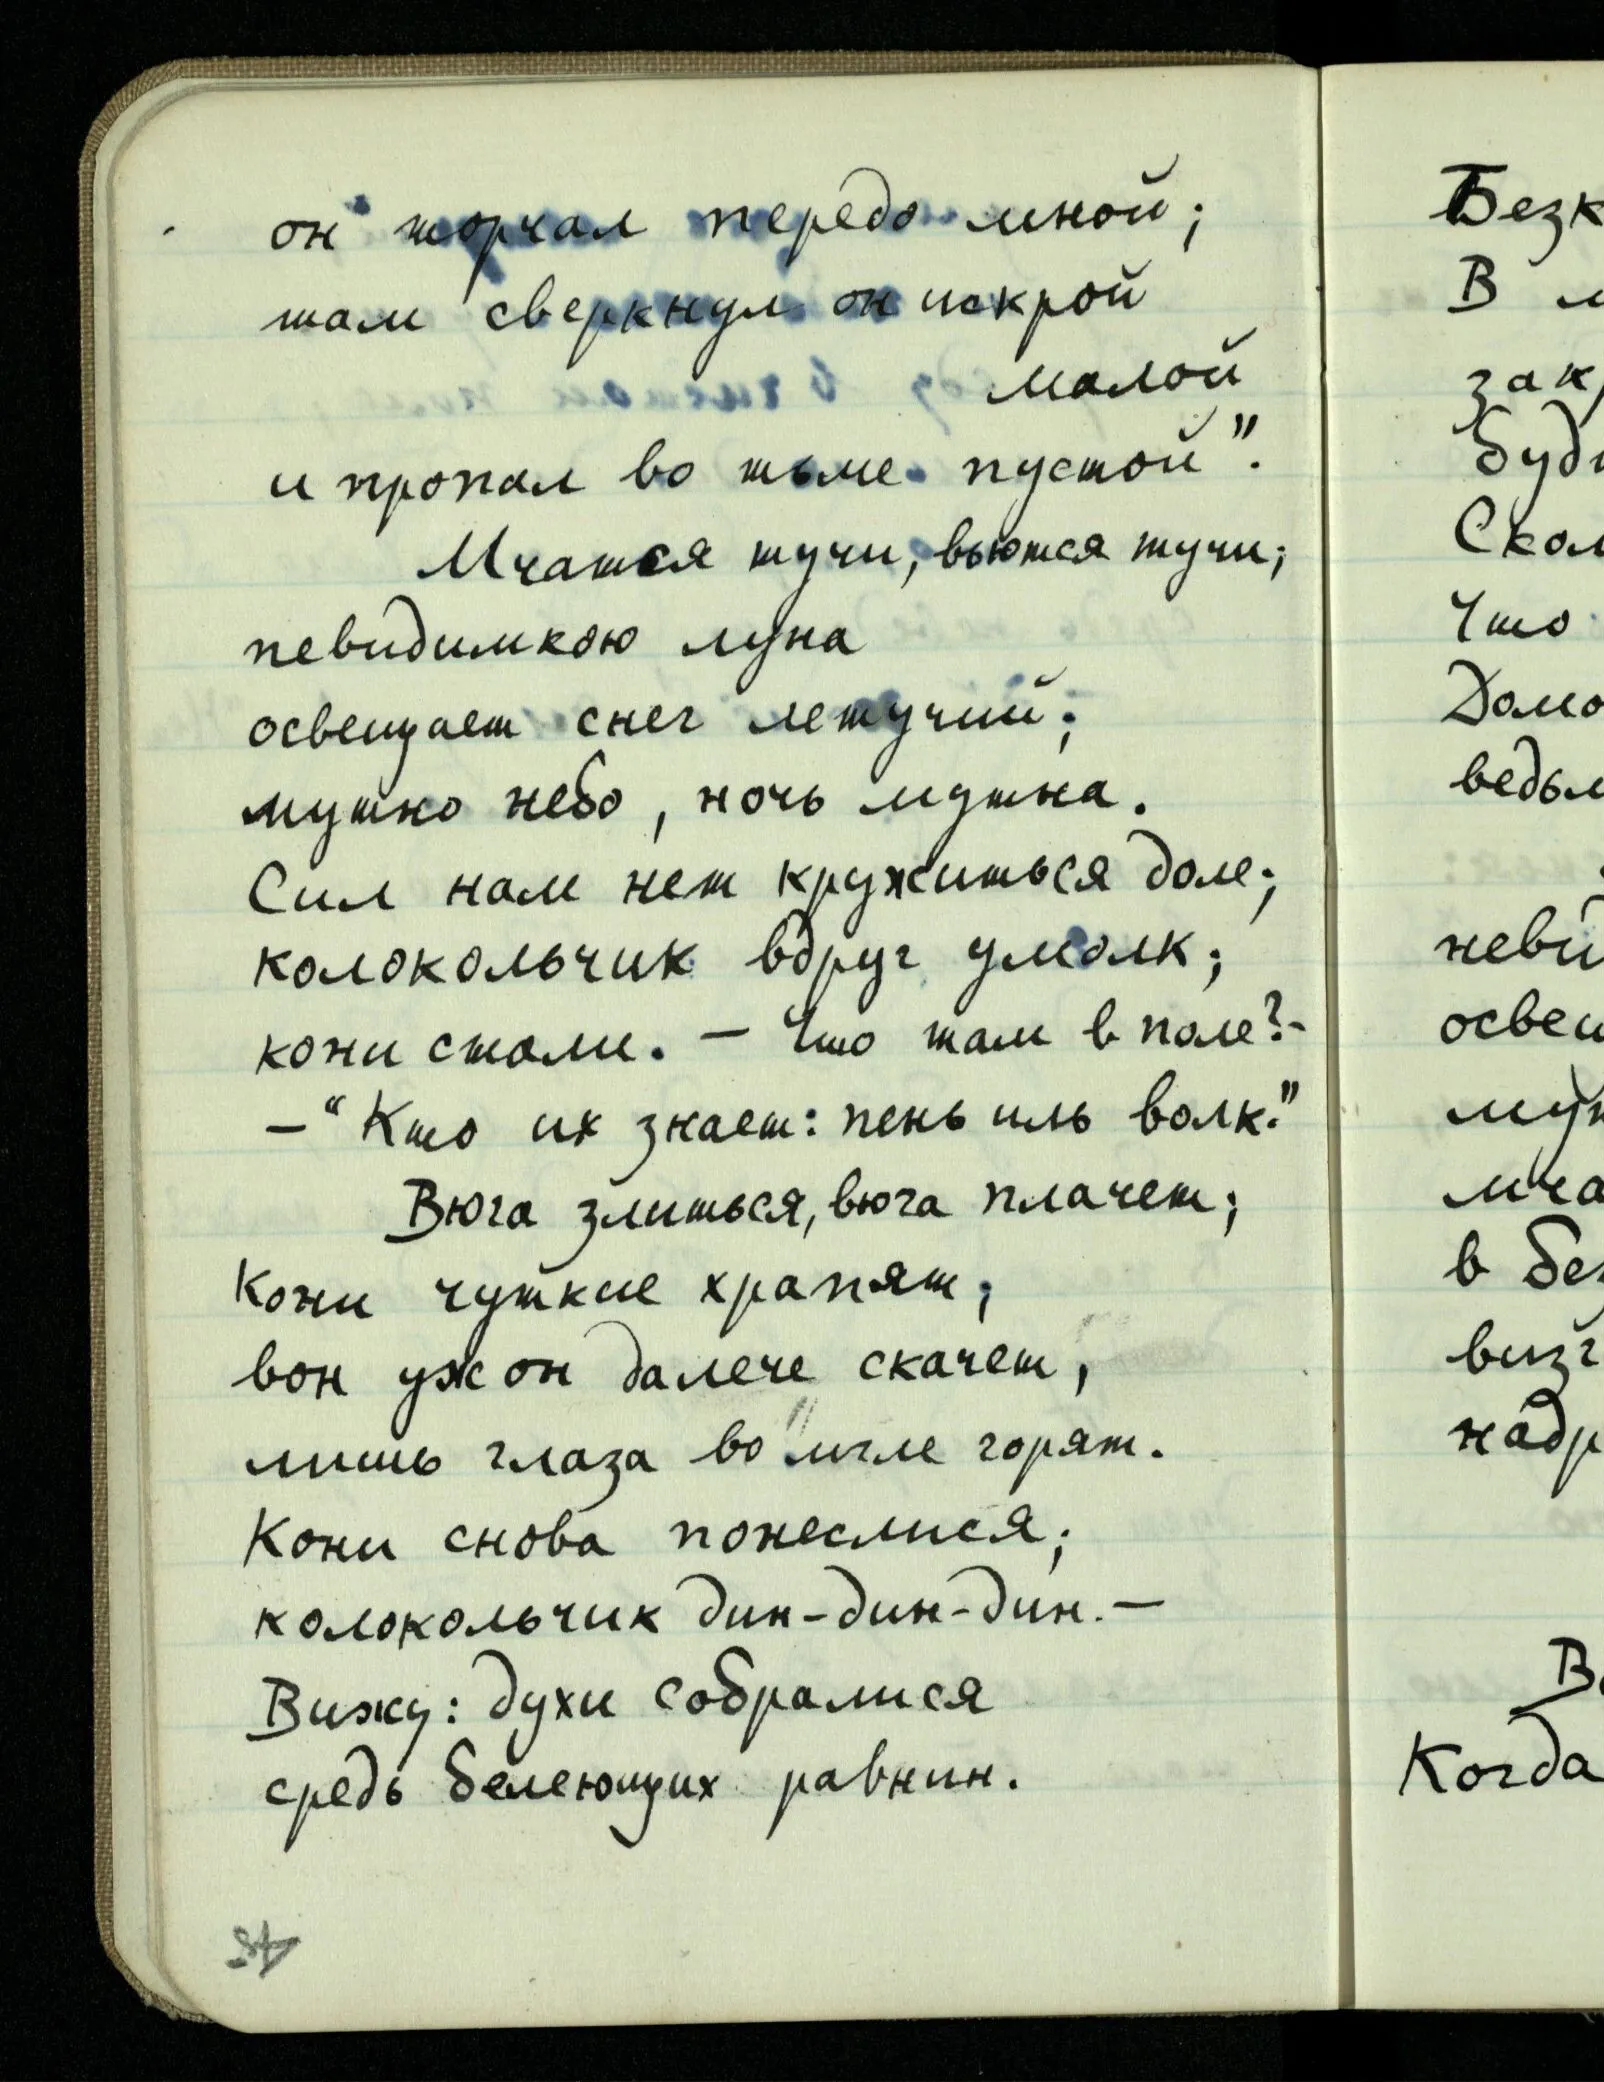 он торчал передо мной;
там сверкнул он искрой
малой
и пропал во тьме пустой".
Мчатся тучи, вьются тучи;
невидимкою луна
освещает снег летучий;
мутно небо, ночь мутна.
Сил нам нет кружиться доле;
колокольчик вдруг умолк;
кони стали. – Что там в поле? –
– "Кто их знает: пень иль волк."
Вюга злиться, вюга плачет;
Кони чуткие храпят;
вон уж он далече скачет,
лишь глаза во мгле горят.
Кони снова понеслися;
колокольчик дин-дин-дин. –
Вижу: духи собралися
средь белеющих равнин.
Безк
В м
зак
Буд
Скол
Что
Домо
ведьм
неви
освещ
мут
мча
в без
визг
надр
В
Когда